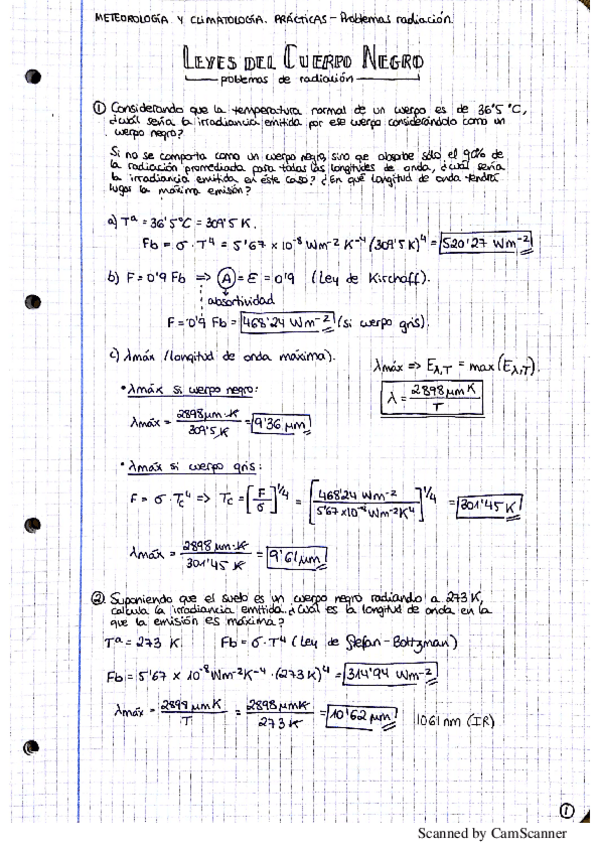 METEOROLOGÍA Y CLIMATOLOGÍA. PRÁCTICAS - Problemas radiación.
LEYES DEL CUERPO NEGRO
problemas de radiación
① Considerando que la temperatura normal de un cuerpo es de 36'5 °C,
¿cuál sería la irradiancia emitida por ese cuerpo considerándolo como un
cuerpo negro?
Si no se comporta como un cuerpo negro, sino que absorbe sólo el 90% de
la radiación promediada para todas las longitudes de onda, ¿cuál sería
la irradiancia emitida en este caso? ¿En qué longitud de onda tendrá
lugar la máxima emisón?
a) Tª = 36'5°C = 309'5 K.
Fb = σ · T⁴ = 5'67 × 10⁻⁸ Wm⁻² K⁻⁴ (309'5 K)⁴ = 520'27 Wm⁻²
b) F = 0'9 Fb ⇒ A = E = 0'9 (Ley de Kirchoff).
absortividad
F = 0'9 Fb = 468'24 Wm⁻² (si cuerpo gris).
c) λmáx (longitud de onda máxima).
λmáx ⇒ Eλ,T = max (Eλ,T).
λ = 2898 μm K / T
• λmáx si cuerpo negro:
λmáx = 2898 μm·K / 309'5 K = 9'36 μm
• λmáx si cuerpo gris:
F = σ Tc⁴ ⇒ Tc = [F/σ]^1/4 = [468'24 Wm⁻² / 5'67 × 10⁻⁸ Wm⁻² K⁴]^1/4 = 301'45 K
λmáx = 2898 μm·K / 301'45 K = 9'61 μm
② Suponiendo que el suelo es un cuerpo negro radiando a 273 K,
calcula la irradiancia emitida. ¿Cuál es la longitud de onda en la
que la emisión es máxima?
Tª = 273 K. Fb = σ · T⁴ (Ley de Stefan - Boltzman)
Fb = 5'67 × 10⁻⁸ Wm⁻² K⁻⁴ · (273 K)⁴ = 314'94 Wm⁻²
λmáx = 2898 μm K / T = 2898 μm K / 273 K = 10'62 μm 1061 nm (IR)
①
Scanned by CamScanner